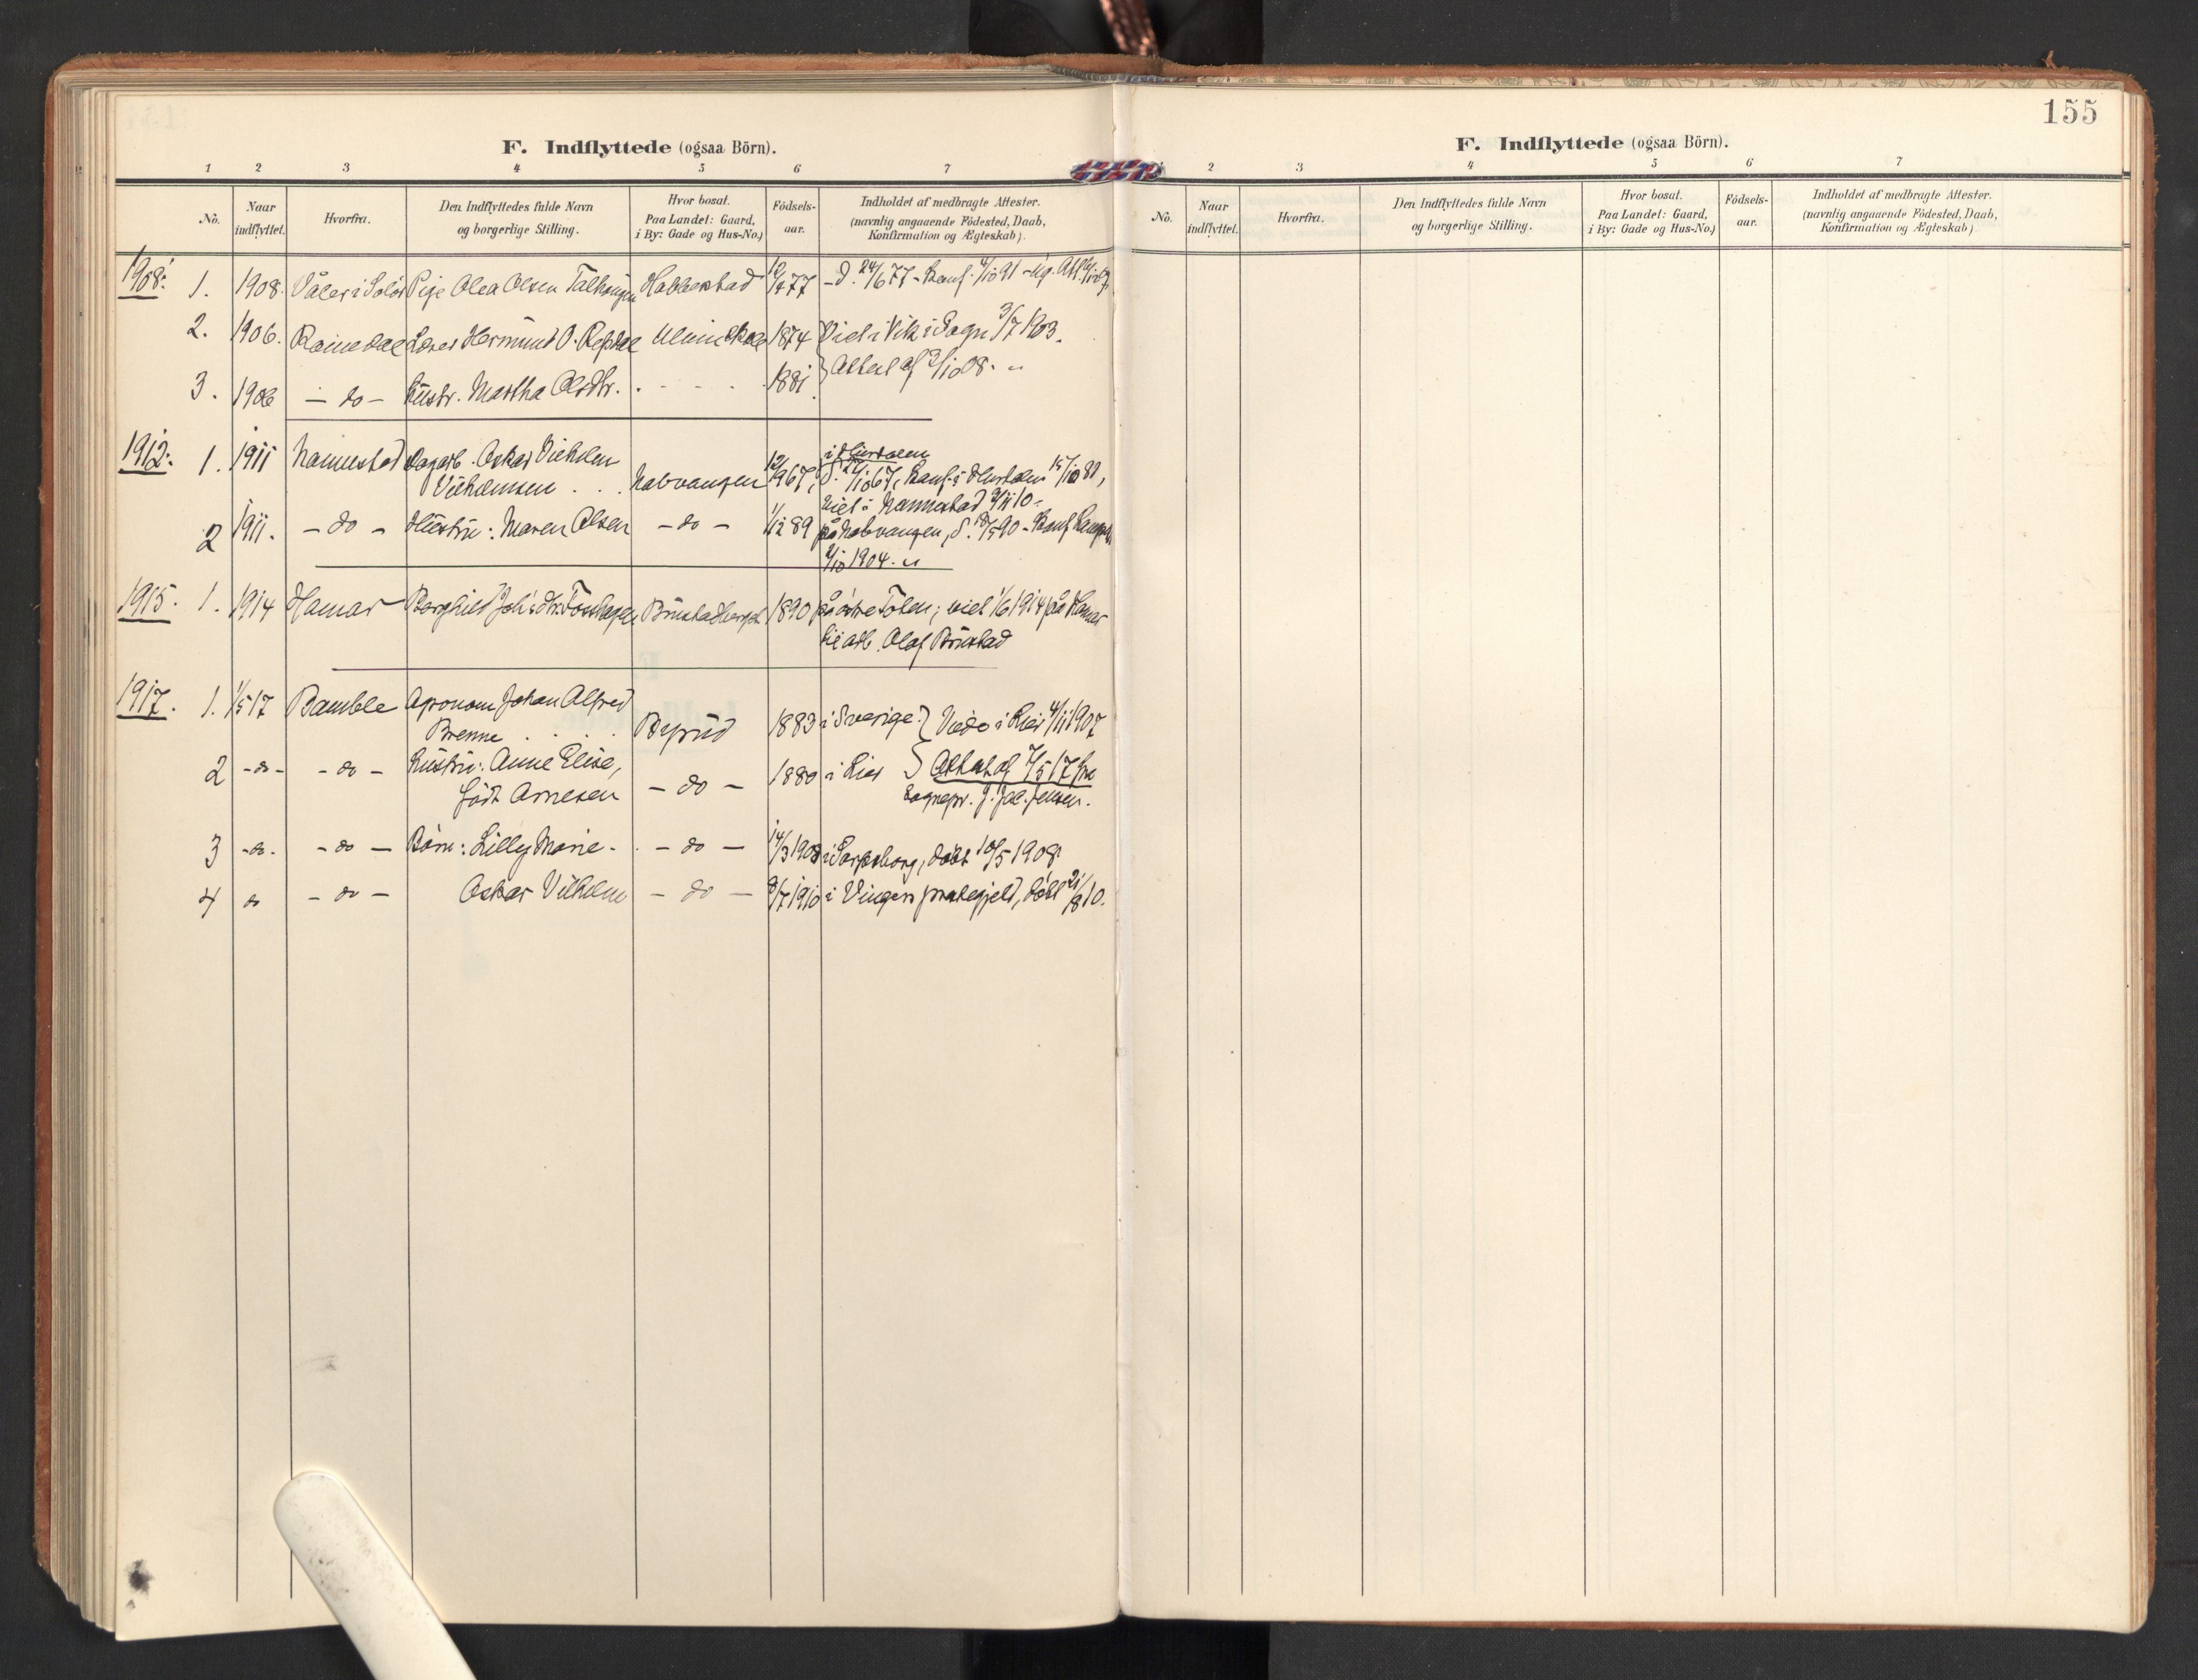 F. Indflyttede (ogsaa Börn).
1 2 3 4 5 6 7
No. Naar indflyttet. Hvorfra. Den Indflyttedes fulde Navn og borgerlige Stilling. Hvor bosat. Paa Landet: Gaard, i By: Gade og Hus-No.) Födsels-aar. Indholdet af medbragte Attester. (navnlig angaaende Födested, Daab, Konfirmation og Ægteskab).
1908: 1. 1908. Våler i Solör Pige Olea Olsen 12/4 77 - d. 24/6 77 - Konf. 4/10 91 - ug. Att.
2. 1906. Lærer Hermund O. 1874 Viet i Vik i Sogn 3/7 1903.
3. 1906 - do - Hustr. Martha Olsdtr. . - - - . 1881 Attest af 3/10 08. "
i Hurdalen
1912: 1. 1911 Nannestad Oskar Vilhelm 12/9 67, d. 27/10 67, Konf. i Hurdalen 15/10 81,
Vilhelmsen . . . Nabvangen viet i Nannestad
2 1911. - do - Hustru: Maren Olsen - do - 1/12 89 på Nabvangen, d. 18/5 90 - Konf.
2/10 1904. "
1915. 1. 1914 Hamar Borghild Joh's dtr. Fosshagen 1890 på östre Toten; viet 1/6 1914 på Hamar
til arb. Olaf Brustad
1917. 1. 1/5 17 Bamble Agronom Johan Alfred
Brenne . . . . Byrud 1883 i Sverige. } Viede i Lier 4/11 1907
2 - do - - do - Hustru: Anne Elise, - do - 1880 i Lier } Attest af 7/5 17 fra
födt Arnesen Sognepr. J. Jac. Jensen.
3 - do - - do - Börn: Lilly Marie - . - do - 14/3 1908 i Sarpsborg, döbt 10/5 1908
4 do - do - Oskar Vilhelm - do - 8/7 1910 i Vingers prestegjeld, döbt 21/8 10.
155
F. Indflyttede (ogsaa Börn).
2 3 4 5 6 7
No. Naar indflyttet. Hvorfra. Den Indflyttedes fulde Navn og borgerlige Stilling. Hvor bosat. Paa Landet: Gaard, i By: Gade og Hus-No.) Födsels-aar. Indholdet af medbragte Attester. (navnlig angaaende Födested, Daab, Konfirmation og Ægteskab)